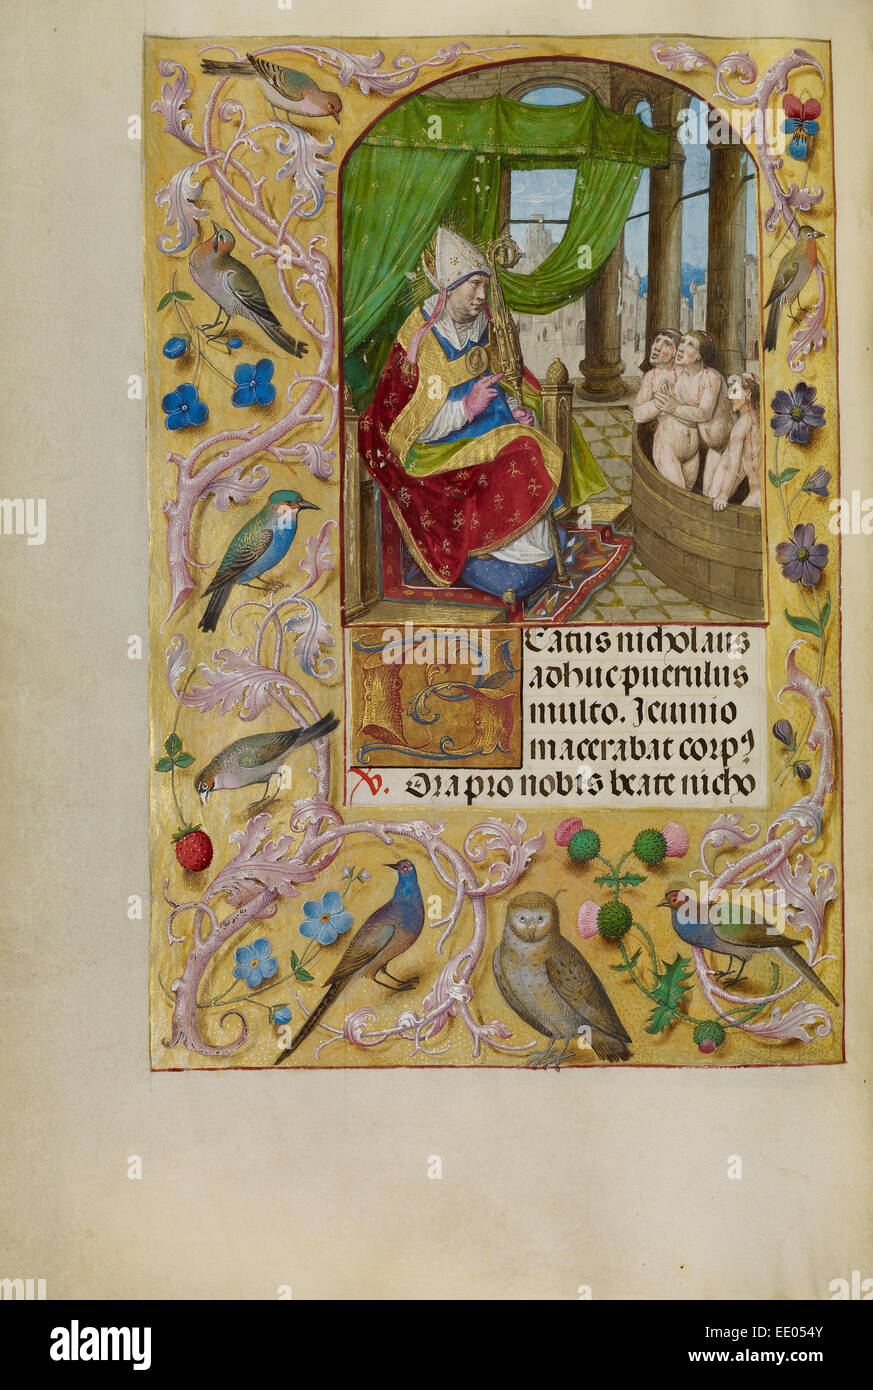 BEatus nicholaus
adhuc puerulus
multo. Jeiunio
macerabat corpꝰ
V. Ora pro nobis beate nicho
alamy
Image ID: EE054Y
www.alamy.com